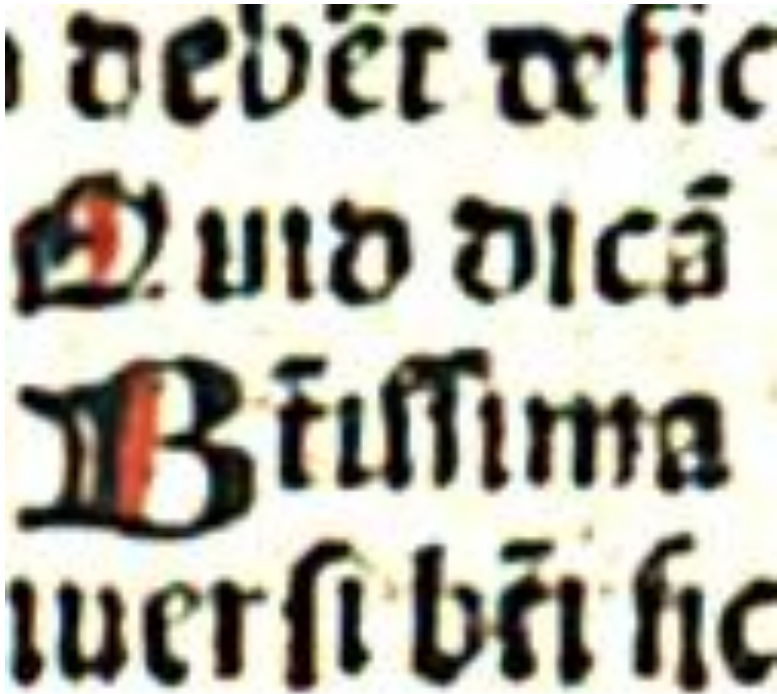 debēt defic
Quid dicā
Bt̄iſſima
uerſi bt̄i ſic